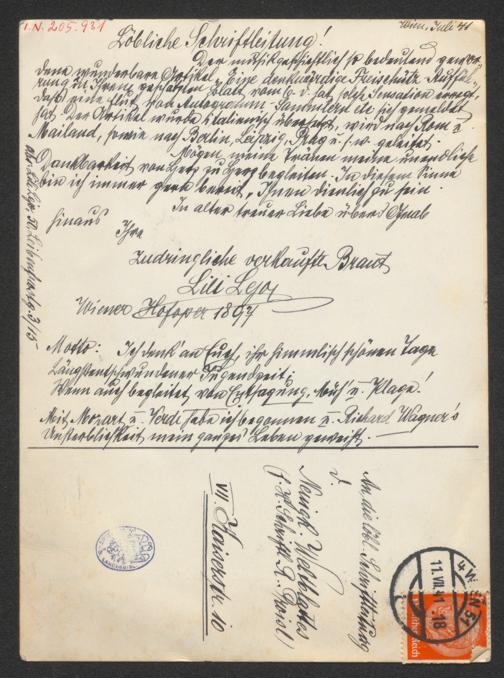 I.N. 205.931
Wien, Juli 41
Löbliche Schriftleitung!
Der musikgeschichtlich so bedeutend gewor-
dene wunderbare Artikel "Eine denkwürdige Freischütz Auffüh-
rung" in Ihrem geschätzten Blatt vom 6. d. hat solche Sensation erregt
daß eine Flut von Autogramm Sammlern sich gemeldet
hat. Der Artikel wurde italienisch übersetzt, wird nach Rom u.
Mailand, sowie nach Berlin, Leipzig, Prag u.s.w. geleitet.
Mögen meine Tränen meine unendliche
Dankbarkeit von Herz zu Herz begleiten. In diesem Sinne
bin ich immer gerne bereit, Ihnen dienlich zu sein.
In alter treuer Liebe über's Grab
hinaus Ihre
zudringliche verkaufte Braut
Lili Lejo
Wiener Hofoper 1897
Motto: Ich denk' an Euch, ihr himmlisch schönen Tage
Längstentschwundener Jugendzeit;
Wenn auch begleitet von Entsagung, u. Klage!
Mit Mozart u. Verdi habe ich begonnen u. Richard Wagner's
Unsterblichkeit mein ganzes Leben geweiht.
An die löbl. Schriftleitung
d.
Neuigk. Weltblattes
VII Kaiserstr. 10
WIEN
11.VII.41.18